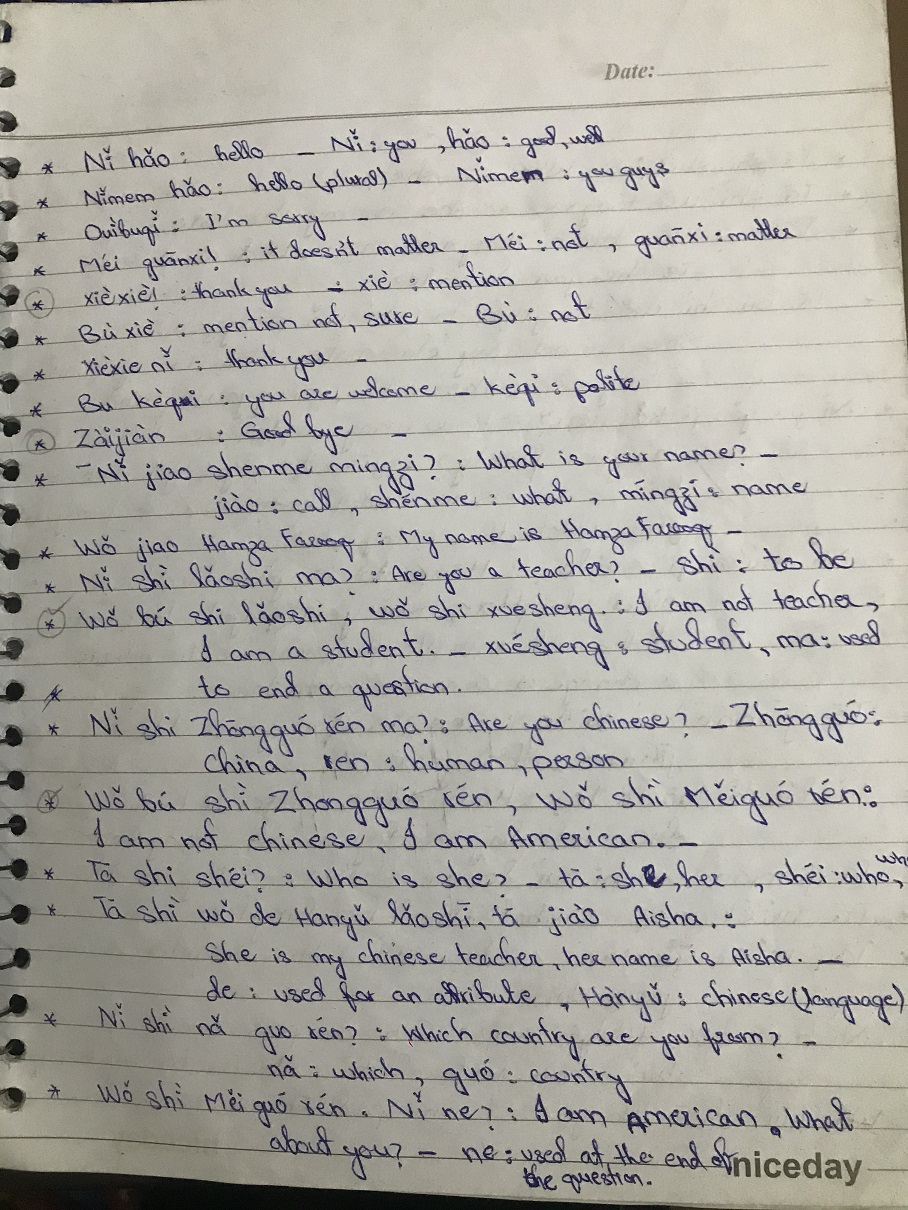 Date:
* Nǐ hǎo : hello – Nǐ : you , hǎo : good, well
* Nǐmem hǎo : hello (plural) – Nǐmem : you guys
* Ouìbuqǐ : I'm sorry –
* Méi guānxi! : it doesn't matter – Méi : not , guānxi : matter
* xièxiè! : thank you – : xiè : mention
* Bù xiè : mention not, sure – Bù : not
* xièxie nǐ : thank you –
* Bu kèqi : you are welcome – kèqi : polite
* Zàijiàn : Good bye –
* – Nǐ jiao shenme mingzi? : What is your name? –
jiào : call , shénme : what , míngzi : name
* Wǒ jiao Hamza Farooq : My name is Hamza Farooq –
* Nǐ shì lǎoshi ma? : Are you a teacher? – shì : to be
* Wǒ bú shi lǎoshi , wǒ shi xuesheng. : I am not teacher,
I am a student. – xuésheng : student, ma : used
* to end a question.
* Nǐ shi Zhōngguó rén ma? : Are you chinese? – Zhōngguó :
China , ren : human , person
* Wǒ bú shì Zhongguó rén , Wǒ shì Měiguó rén :
I am not chinese, I am American. –
* Tā shi shéi? : Who is she? – tā : she, her , shéi : who,
* Tā shì wǒ de Hanyǔ lǎoshī, tā jiào Aisha. :
She is my chinese teacher, her name is Aisha. –
de : used for an attribute , Hànyǔ : chinese (language)
* Nǐ shì nǎ guo rén? : Which country are you from? –
nǎ : which , guó : country
* Wǒ shì Měi guó rén . Nǐ ne? : I am American. What
about you? – ne : used at the end of
the question.
niceday